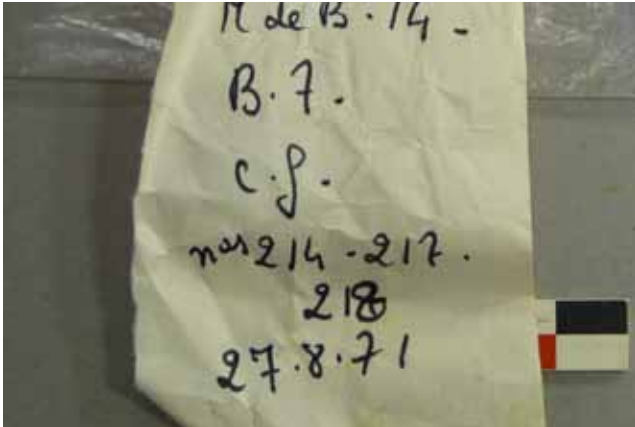 M de B. 14 -
B. 7.
C. g.
nos 214 - 217.
218
27.8.71